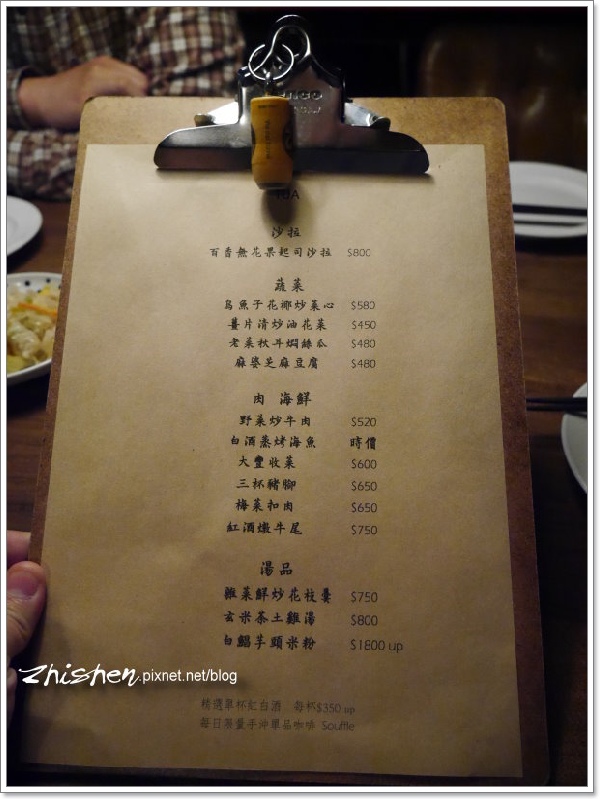 沙拉
百香無花果起司沙拉 $800
蔬菜
烏魚子花椰炒菜心 $580
薑片清炒油花菜 $450
老菜秋耳燜絲瓜 $480
麻婆芝麻豆腐 $480
肉 海鮮
野菜炒牛肉 $520
白酒蒸烤海魚 時價
大豐收菜 $600
三杯豬腳 $650
梅菜扣肉 $650
紅酒燉牛尾 $750
湯品
雞菜鮮炒花枝羹 $750
玄米茶土雞湯 $800
白鯧芋頭米粉 $1800 up
精選單杯紅白酒 每杯$350 up
每日限量手沖單品咖啡 Souffle
zhishen.pixnet.net/blog